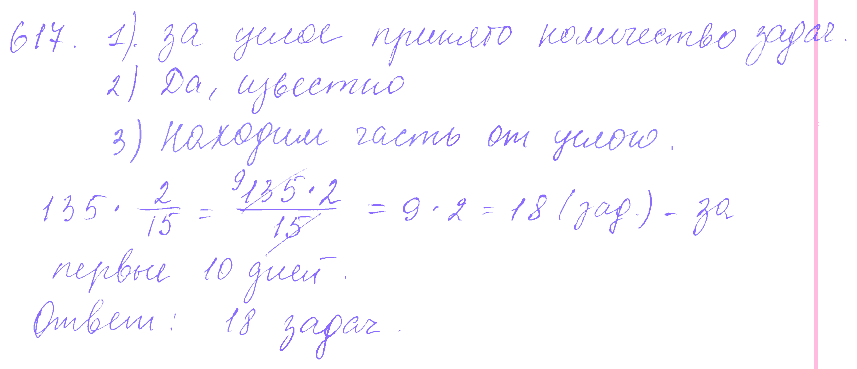 617. 1). За целое принято количество задач.
2) Да, известно
3) Находим часть от целого.
135 · 2/15 = 9 135 · 2/15 = 9 · 2 = 18 (зад.) - за
первые 10 дней.
Ответ: 18 задач.